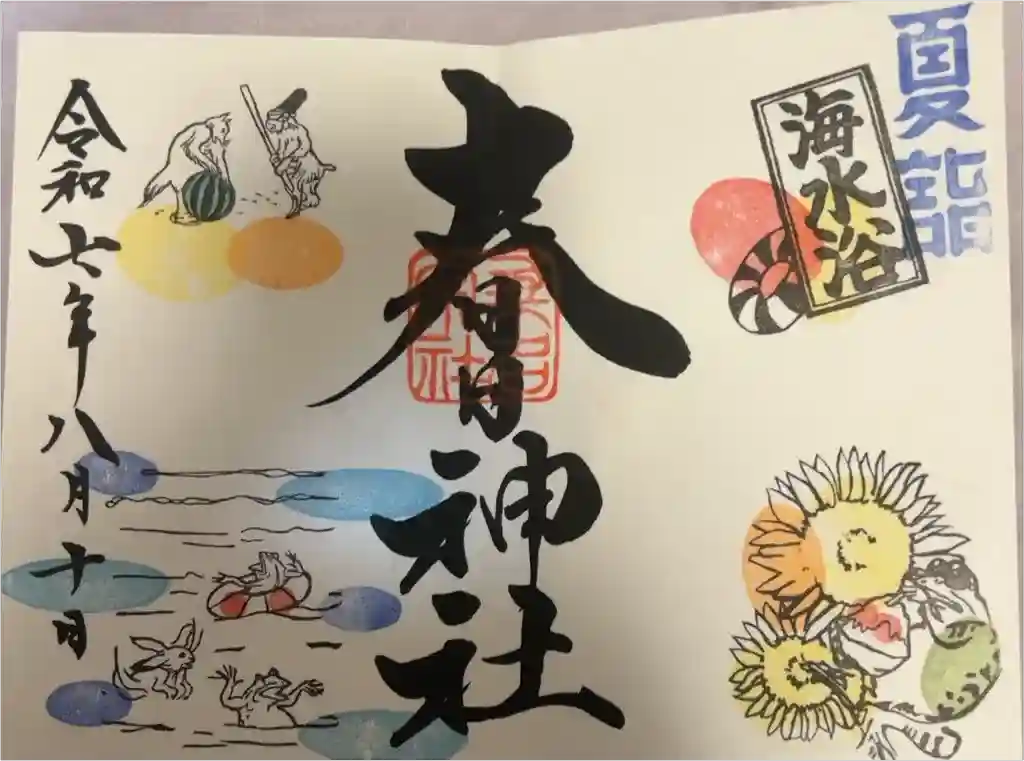 夏詣
海水浴
春日神社
令和七年八月十日